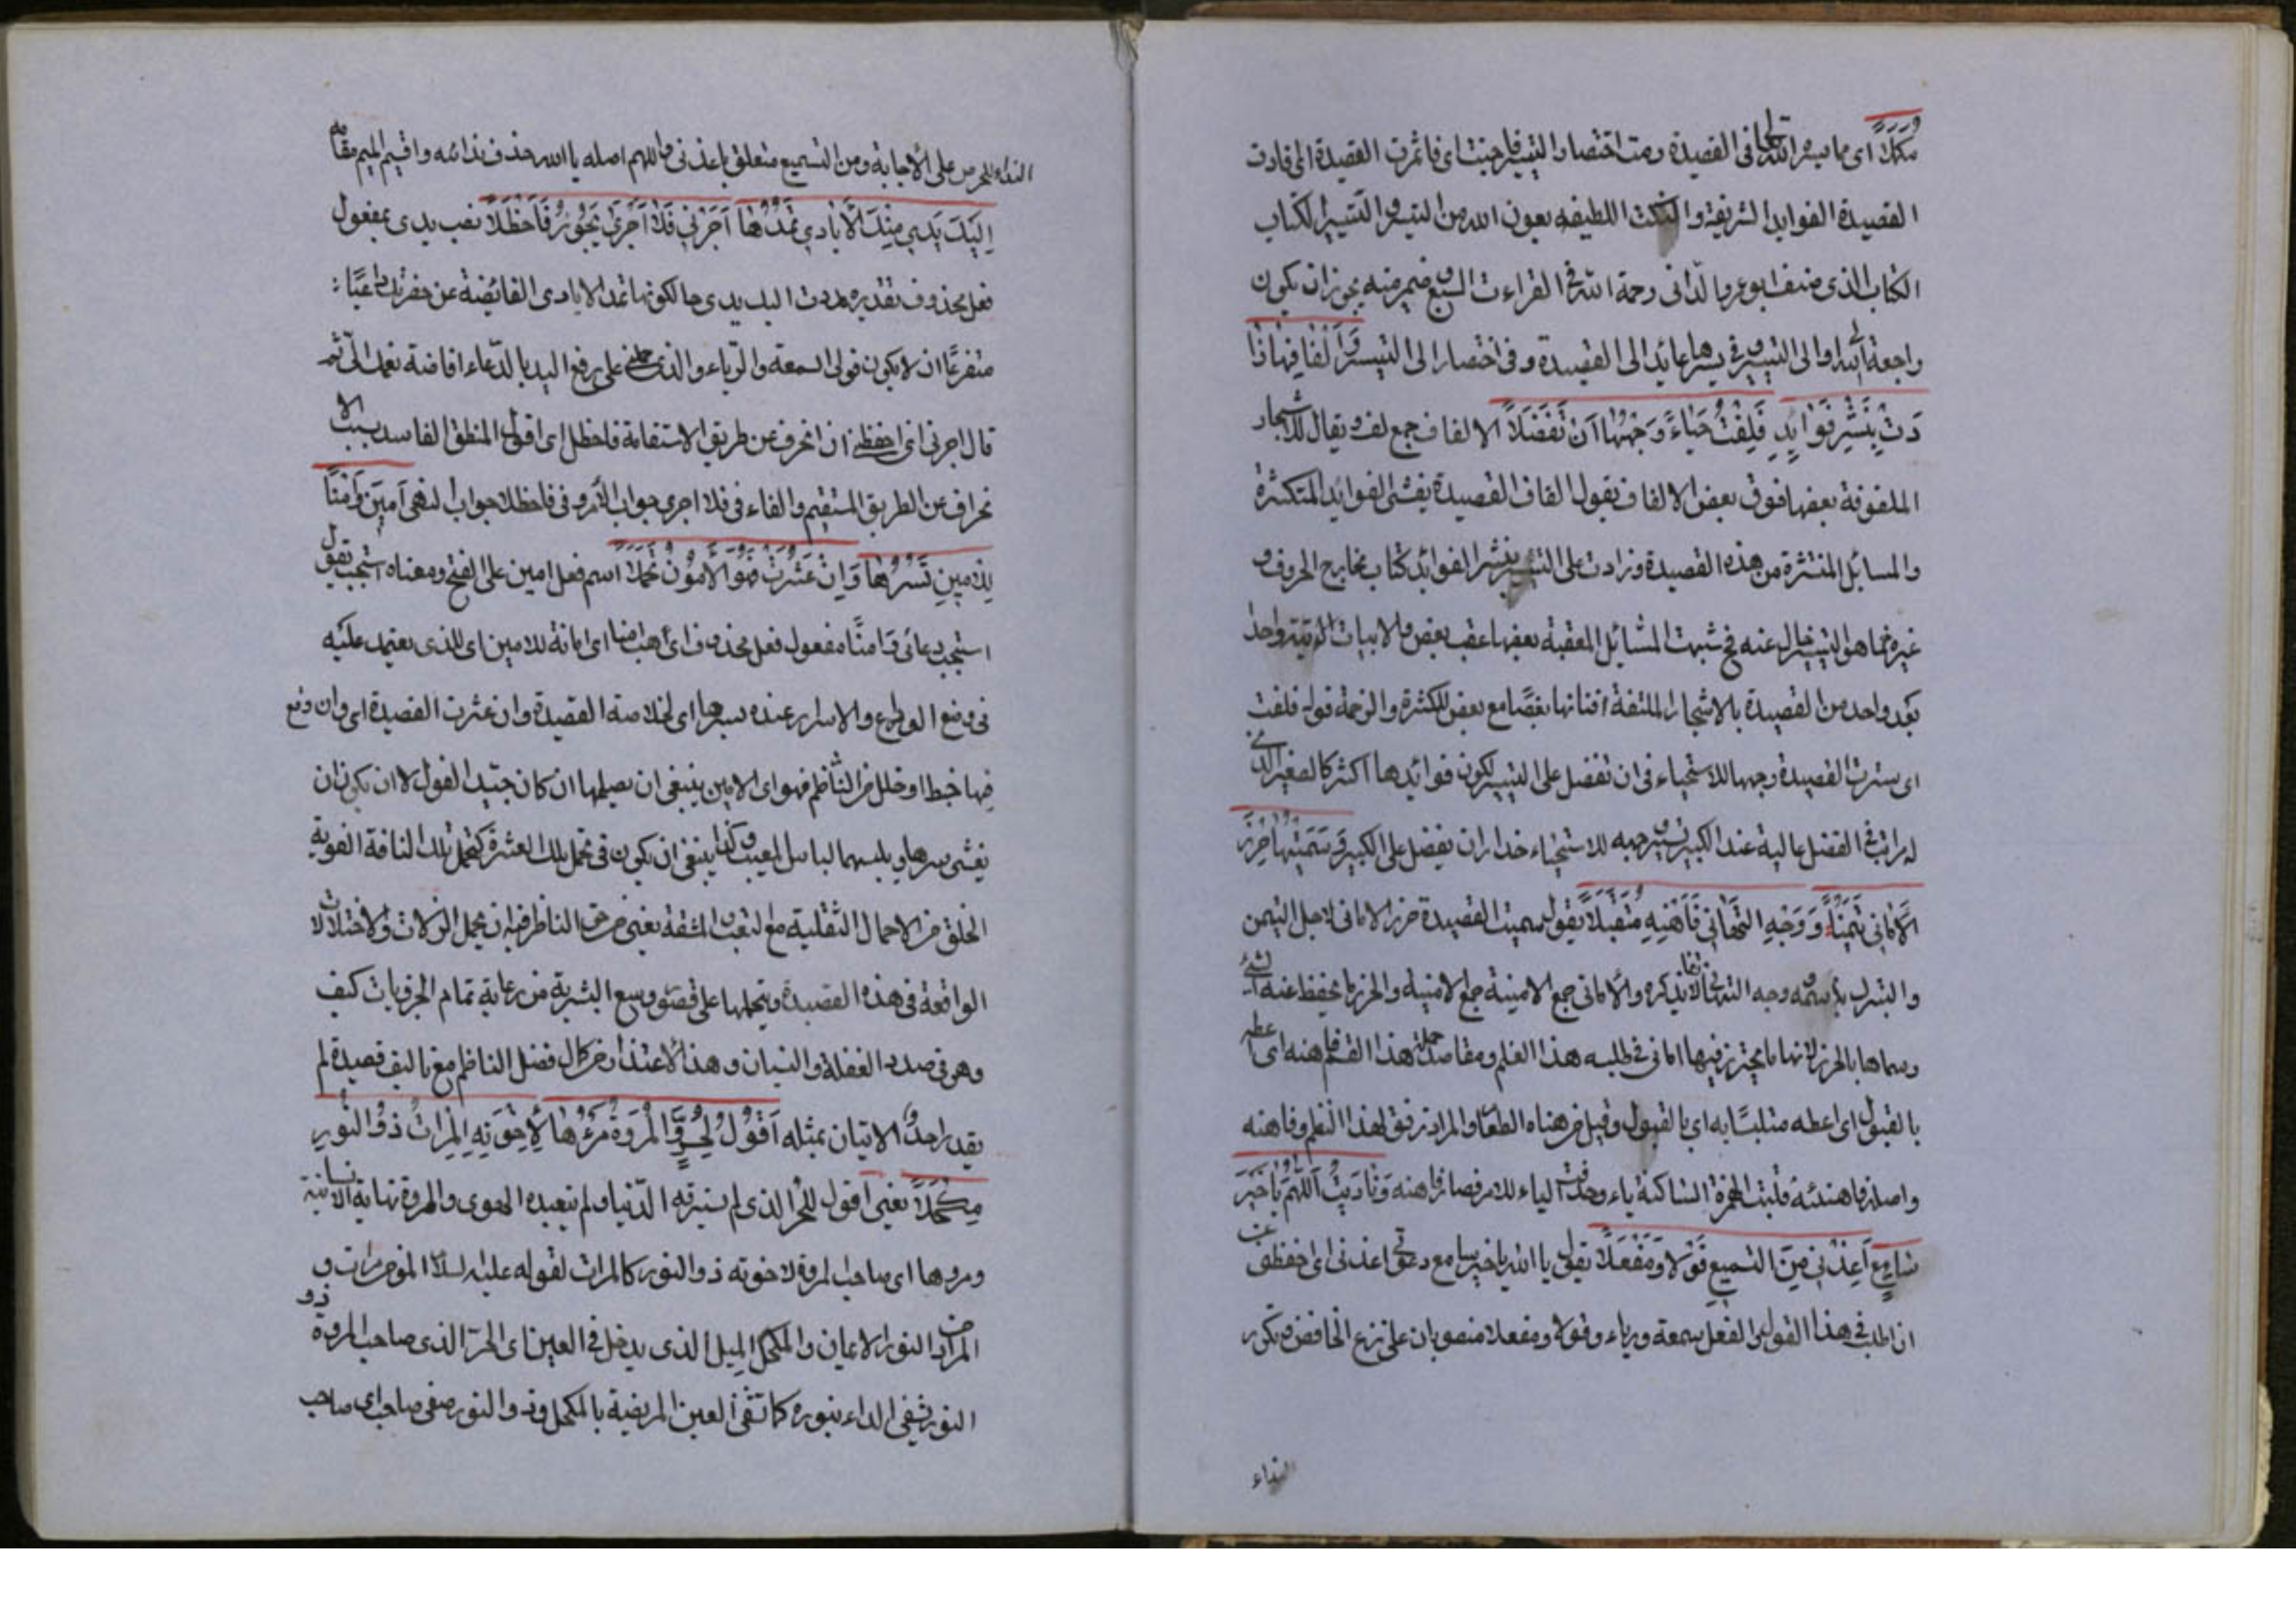 مكملا اى ما يسره الله تعالى فى القصيدة رمت اختصار التيسير فاجنت اى فاثمرت القصيدة اى فادت
القصيدة الفوايد الشريفة والنكت اللطيفه بعون الله من التيسير والتيسير الكتاب
الكتاب الذى صنف ابو عمرو الدانى رحمة الله فى القراءت السبع ضمير منه يجوز ان يكون
راجعة الى الله او الى التيسير وفى يسرها عايد الى القصيدة وفى اختصاره الى التيسير وَاَلْفَافُهَا زَا
دَتْ بِنَشْرِ فَوَائِدٍ فَلَفَّتْ حَيَاءً وَجْهَهَا اَنْ تُفَضَّلَا الالفاف جمع لف ويقال للاشجار
الملفوفة بعضها فوق بعض الالفاف يقول الفاف القصيدة بنشر الفوايد المتكثرة
والمسائل المنتثرة من هذه القصيدة زادت على التيسير بنشر الفوائد كتاب مخارج الحروف و
غيره مما هو التيسير خال عنه شبهت المسائل المعقبة بعضها عقب بعض والابيات المرتبة واحدا
بعد واحد من القصيدة بالاشجار الملتفة افنانها بعضا مع بعض للكثرة والزحمة قوله فلفت
اى سترت القصيدة وجهها للاستحياء فى ان تفضل على التيسير لكون فوائدها اكثر كالصغير الذى
له مراتب الفضل عالية عند الكبير يستر وجهه للاستحياء حذرا ان يفضل على الكبير وَسَمَّيْتُهَا حِرْزَ
الْاَمَانِى تَيَمُّنًا وَوَجْهِ التَّهَانِى فَاهْنِهِ مُتَقَبِّلًا يقول سميت القصيدة حرز الامانى لاجل التيمن
والتبرك باسمه ووجه التهانى بذكره والامانى جمع الامنية والحرز ما يحفظ عنه الشئ
وسماها بالحرز لانها ما يحترز فيها امانى طلبه هذا العلم ومقاصد حملة هذا القسم فاهنه اى اعطه
بالقبول اى اعطه متلبسا به اى بالقبول وقيل من هناه الطعام والمراد ترفق لهذا النظم وفاهنه
واصله فاهنئه قلبت الهمزة الساكنة ياء وحذفت الياء للامر فصار فاهنه وَنَادَيْتُ اَللّهُمَّ يَا خَيْرَ
سَامِعٍ اَعِذْنِى مِنَ التَّسْمِيعِ قَوْلًا وَمَفْعَلًا يقول يا الله يا خير سامع دعائى اعذنى اى احفظنى عن
ان اطلب فى هذا القول والفعل سمعة ورياء وقولا ومفعلا منصوبان على نزع الخافض وتكرر
النداء
النداء للحرص على الاجابة ومن التسميع متعلق باعذنى واللهم اصله يا الله حذف ندائه واقيم الميم مقامه
اِلَيْكَ يَدِى مِنْكَ الْاَيَادِى تَمُدُّهَا اَجِرْنِى فَلَا اَجْرِى بِجَوْرٍ فَاَخْطَلَا نصب يدى بمفعول
فعل محذوف تقديره مددت اليك يدى حالكونها تمد الايادى الفائضة عن حضرتك داعيا
متضرعا ان لا يكون قولى السمعة والرياء والذى حملنى على رفع اليد بالدعاء افاضة نعمك الى ثم
قال اجرنى اى احفظنى ان انحرف عن طريق الاستقامة فاخطل اى اقول المنطق الفاسد بسبب الا
نحراف عن الطريق المستقيم والفاء فى فلا اجرى جواب الامر وفى فاخطلا جواب النفى اَمِينَ وَاَمْنًا
لِلْاَمِينِ بِسِرِّهَا وَاِنْ عَثَرَتْ فَهُوَ الْاَمُونُ تَحَمُّلًا اسم فعل امين على الفتح ومعناه استجب يقول
استجب دعائى وامنا مفعول فعل محذوف اى هب امنا اى امانة للامين اى للذى يعتمد عليه
فى وضع الودايع والاسرار عنده بسرها اى لخلاصة القصيدة وان عثرت القصيدة اى وان وقع
فيها خبط او خلل من الناظم فهو اى الامين ينبغى ان يصلها ان كان جيد القول لا ان يكون ان
يفشى سرها ويلبسها لباس المعيب وكذا ينبغى ان يكون فى تحمل تلك العثرة كتحمل تلك الناقة القوية
الخلق من الاحمال الثقلية مع التعب والمشقة يعنى من حق الناظر فيه ان يحمل الزلات والاختلالات
الواقعة فى هذه القصيدة ويحملها على قصور وسع البشرية من رعاية تمام الجزئيات كيف
وهو فى صدد الغفلة والنسيان وهذا الاعتذار من كمال فضل الناظم مع تاليف قصيدة لم
يقدر احد الاتيان بمثله اَقُولُ لِحُرٍّ وَالْمُرُوَةُ مَرْءُهَا لِاِخْوَتِهِ الْمِرْاٰتُ ذُو النُّورِ
مِكْحَلًا يعنى اقول للحر الذى لم يسترقه الدنيا ولم يتعبده الهوى والمروة نهاية الانسانية
ومروها اى صاحب المروة لاخوته ذو النور كالمرات لقوله عليه السلام المؤمن مرات و
المراد من النور الايمان والمكحل الميل الذى يدخل فى العين اى الحر الذى صاحب المروة ذو
النور يشفى الداء بنوره كما تشفى العين المريضة بالمكحل وذو النور صفى صاحب اى صاحب